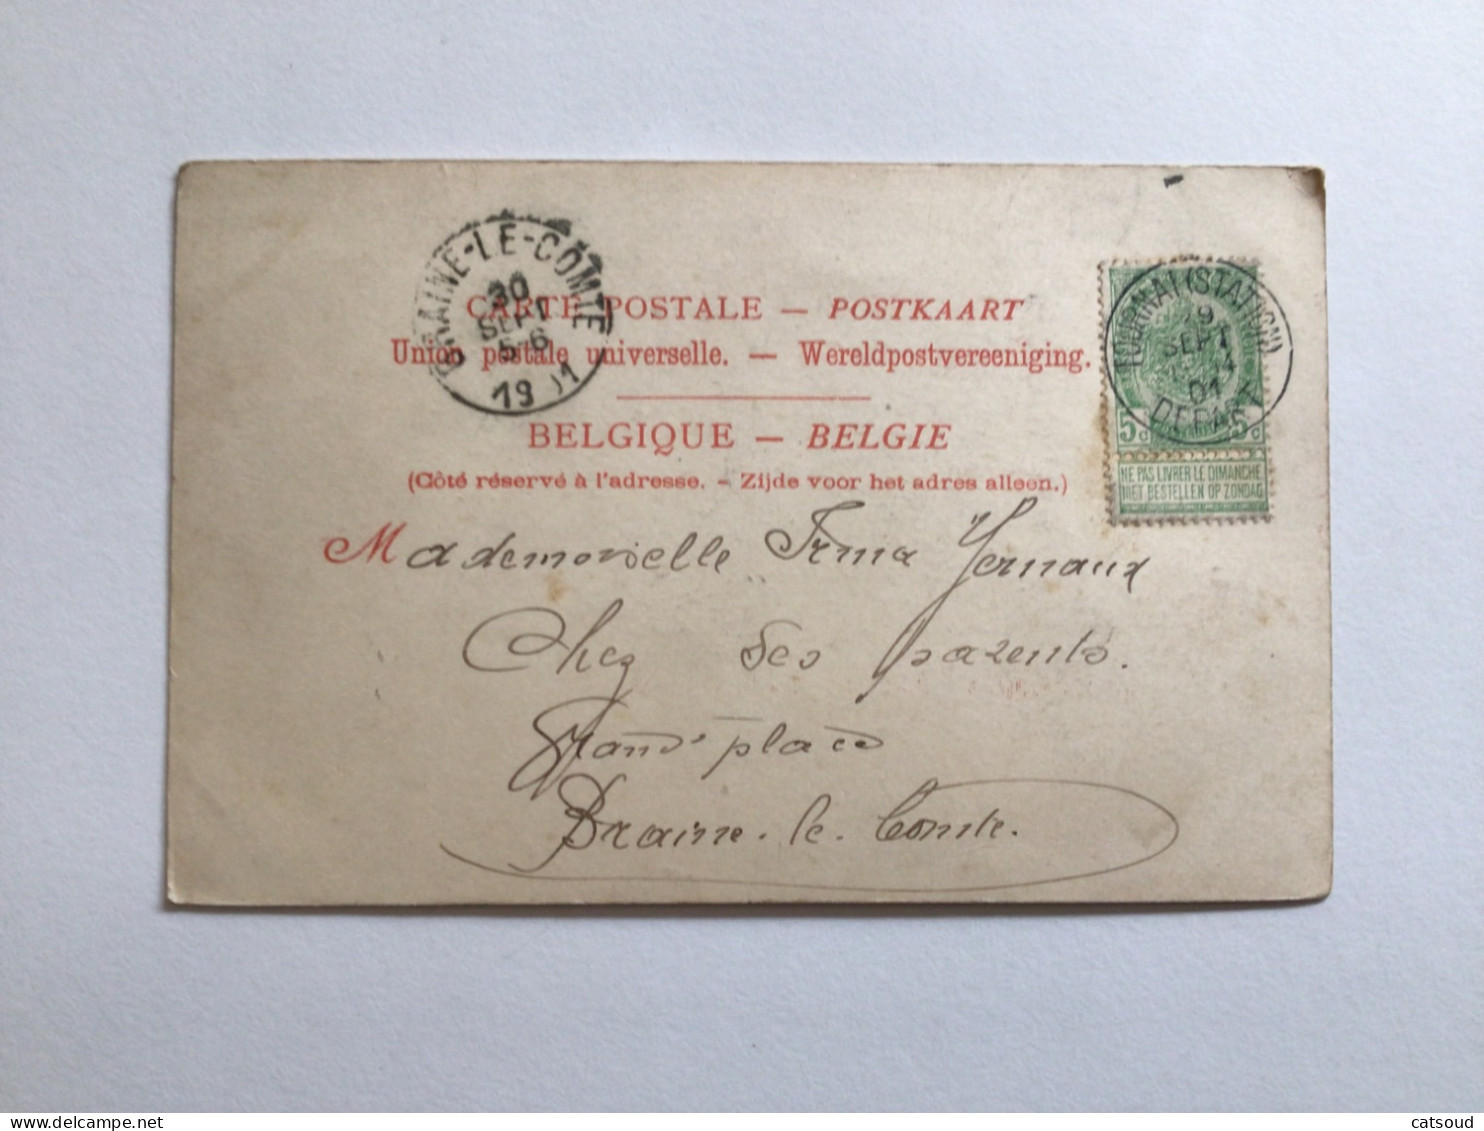 BRAINE-LE-COMTE
30
SEPT
5-6
1901
TOURNAI (STATION)
SEPT
01
DEPART
CARTE POSTALE — POSTKAART
Union postale universelle. — Wereldpostvereeniging.
BELGIQUE — BELGIE
(Côté réservé à l'adresse. - Zijde voor het adres alleen.)
5c 5c
NE PAS LIVRER LE DIMANCHE
NIET BESTELLEN OP ZONDAG
Mademoiselle Irma Yernaux
Chez ses parents.
Grand'place
Braine-le-Comte.
catsoud
delcampe.net